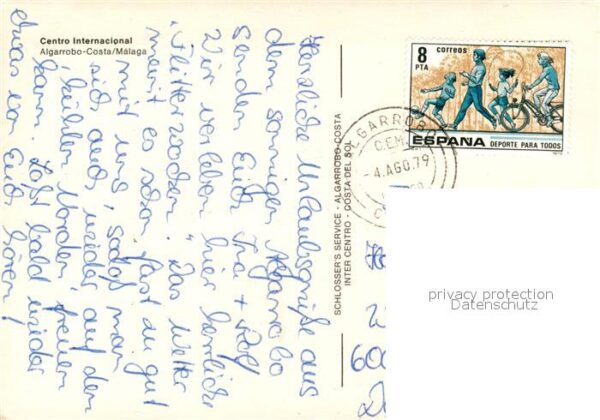 Centro Internacional
Algarrobo-Costa/Málaga
Herzliche Urlaubsgrüße aus
dem sonnigen Algarrobo
senden Euch Ina + Rolf
Wir verleben hier herrliche
"Flitterwochen". Das Wetter
meint es schon fast zu gut
mit uns, sodaß man
sich auch wieder auf den
kühlen Norden freuen
kann. Laßt bald wieder
etwas von Euch hören!
SCHLOSSER'S SERVICE - ALGARROBO-COSTA
INTER CENTRO - COSTA DEL SOL
8 PTA
correos
ESPAÑA DEPORTE PARA TODOS
ALGARROBO
-4.AGO.79
600
privacy protection
Datenschutz